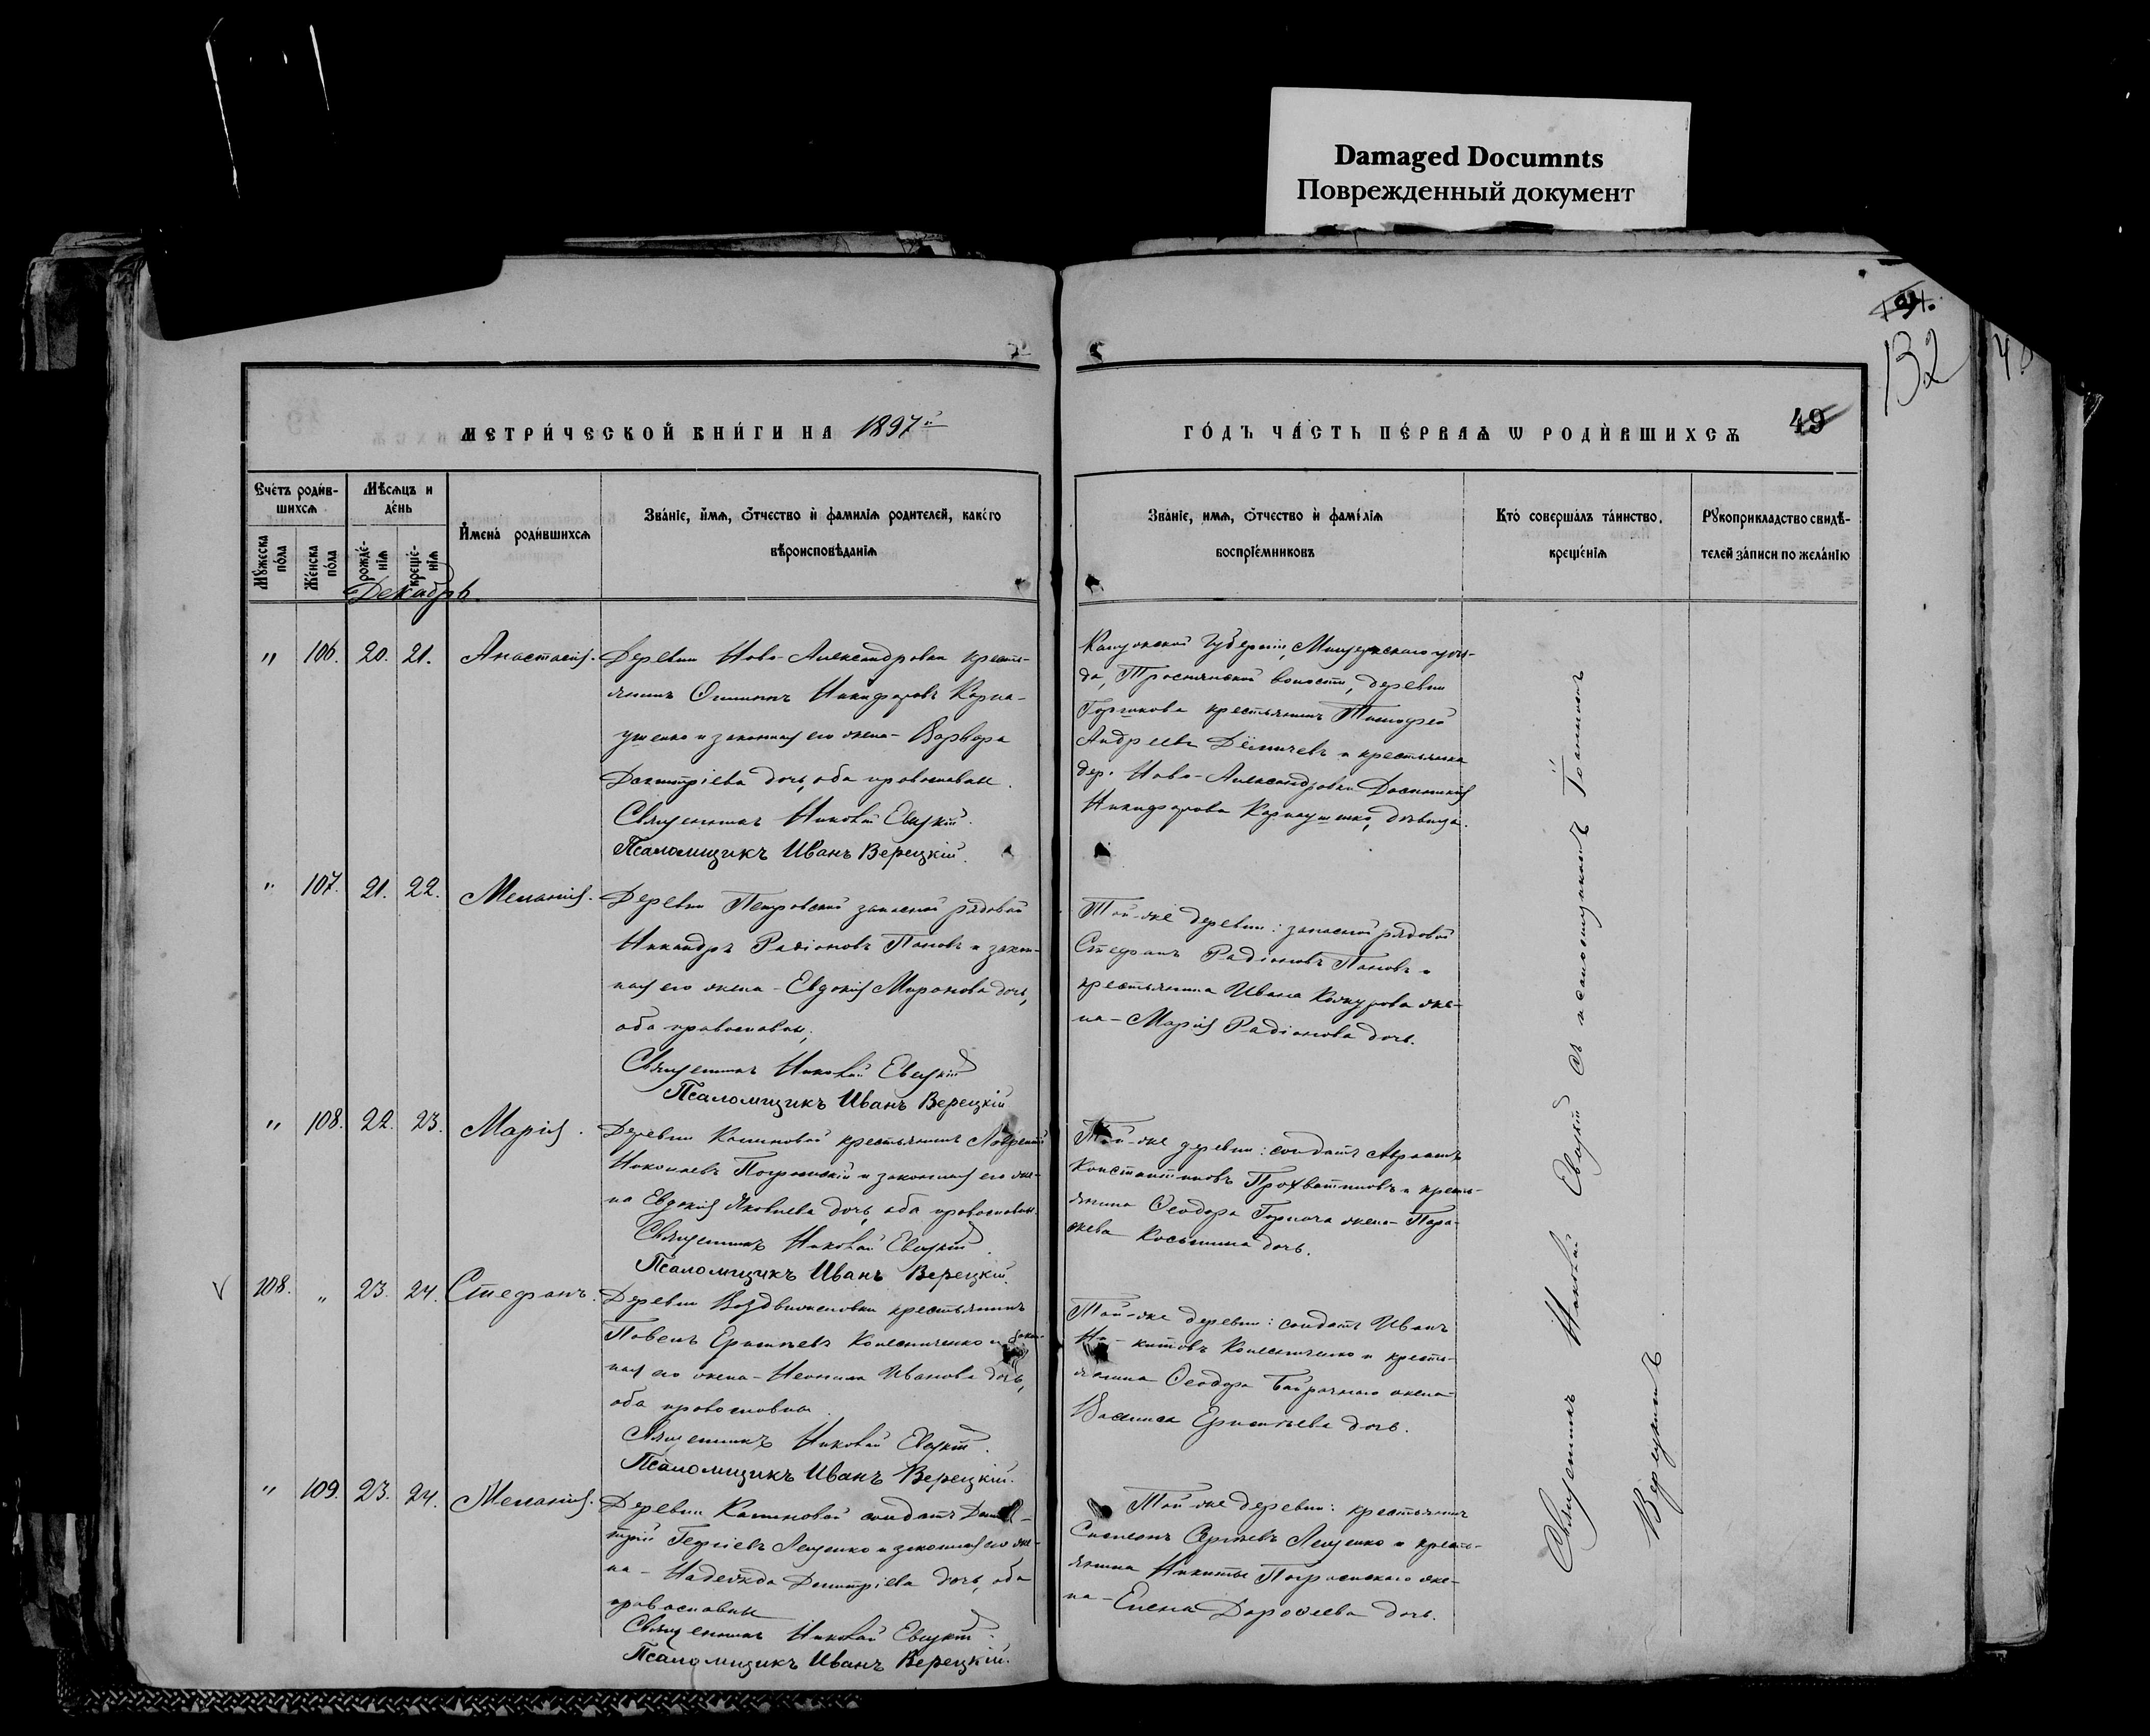 Damaged Documnts
Поврежденный документ
132
49
МЕТРИ́ЧЕСКОЙ КНИ́ГИ НА 1897й
ГО́ДЪ ЧА́СТЬ ПЕ́РВАѦ Ѡ РОДИ́ВШИХСѦ
Сче́тъ роди́в-
шихсѧ
Мꙋ́жеска по́ла
Же́нска по́ла
Мѣ́сѧцъ и де́нь
рожде́-
нїѧ
креще́-
нїѧ
Декабрь.
И҆мена̀ роди́вшихсѧ
Зва́нїе, и҆́мѧ, ѻ҆́тчество и҆ фами́лїѧ роди́телей, како́го
вѣроисповѣ́данїѧ
Зва́нїе, и́мѧ, ѻ҆́тчество и҆ фами́лїѧ
воспрїе́мниковъ
Кто̀ соверша́лъ та́инство
креще́нїѧ
Рꙋкоприкладство свидѣ́-
телей за́писи по жела́нїю
" 106. 20. 21. Анастасія.
Деревни Ново-Александровки кресть-
янинъ Никифоровъ Карпа-
ушенко и законная его жена - Варвара
Димитріева дочь, оба православны.
Священникъ Николай Евицкій.
Псаломщикъ Иванъ Верецкій.
Калужской губерніи, Мещовскаго уѣз-
да, волости, деревни
Горшкова крестьянинъ Тимофей
Андреевъ и крестьянка
дер. Ново-Александровки
Никифорова дѣвица.
" 107. 21. 22. Меланія.
Деревни Петровской запасной рядовой
Никандръ Радіоновъ Пановъ и закон-
ная его жена - Евдокія Миронова дочь,
оба православны,
Священникъ Николай Евицкій
Псаломщикъ Иванъ Верецкій
Той-же деревни: запасной рядовой
Стефанъ Радіоновъ Пановъ и
крестьянина Ивана же-
на - Марія Радіонова дочь.
" 108. 22. 23. Марія.
Деревни Калиновой крестьянинъ Лаврентій
Николаевъ и законная его же-
на Евдокія Яковлева дочь, оба православны.
Священникъ Николай Евицкій.
Псаломщикъ Иванъ Верецкій.
Той-же деревни: солдатъ Авраамъ
Константиновъ Прохватиловъ и кресть-
янина Ѳеодора жена - Пара-
скева Косьмина дочь.
108. " 23. 24. Стефанъ.
Деревни Воздвиженовки крестьянинъ
Павелъ Колесниченко и закон-
ная его жена - Неонила Иванова дочь,
оба православны.
Священникъ Николай Евицкій.
Псаломщикъ Иванъ Верецкій.
Той-же деревни: солдатъ Иванъ
Ни-китовъ Колесниченко и кресть-
янина Ѳеодора жена -
Василиса дочь.
" 109. 23. 24. Меланія.
Деревни Калиновой солдатъ Дими-
трій Георгіевъ Лещенко и законная его же-
на - Надежда Димитріева дочь, оба
православны
Священникъ Николай Евицкій.
Псаломщикъ Иванъ Верецкій.
Той-же деревни: крестьянинъ
Симеонъ Сергѣевъ Лещенко и кресть-
янина Никиты же-
на - Елена Дороѳеева дочь.
Священникъ Николай Евицкій съ псаломщикомъ Іоанномъ
Верецкимъ.